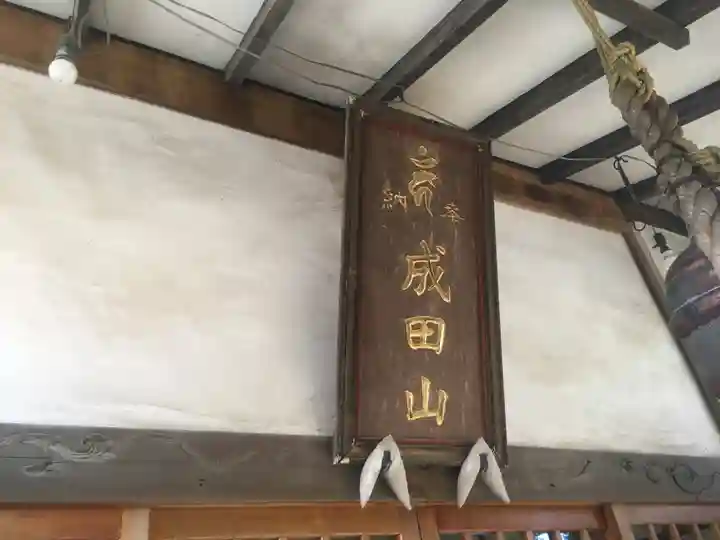 奉納
成田山